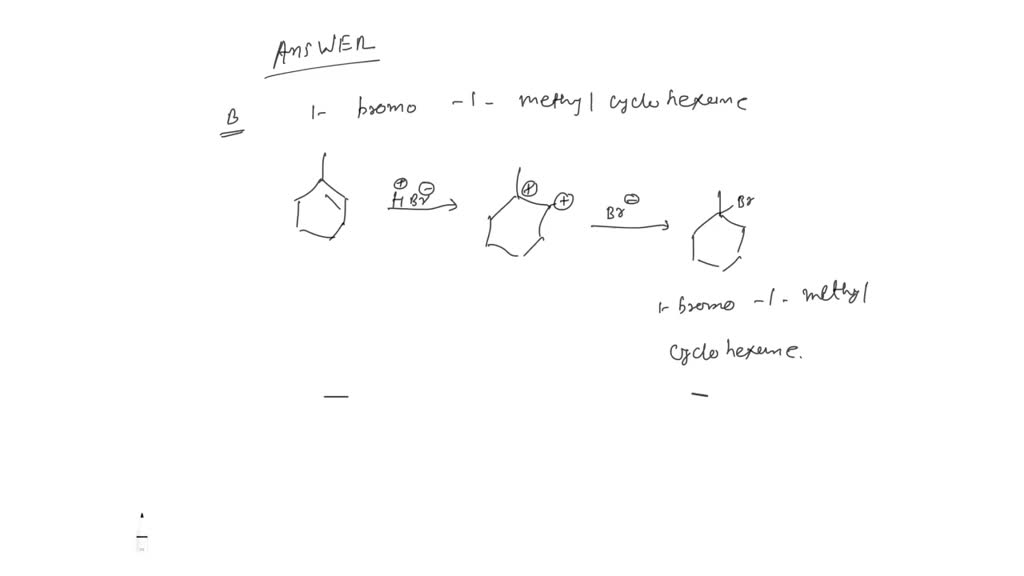 ANSWER
B 1- bromo -1- methyl cyclo hexane
H⊕ Br⊖
⊕ ⊕
Br⊖
Br
1- bromo -1- methyl
cyclo hexane.